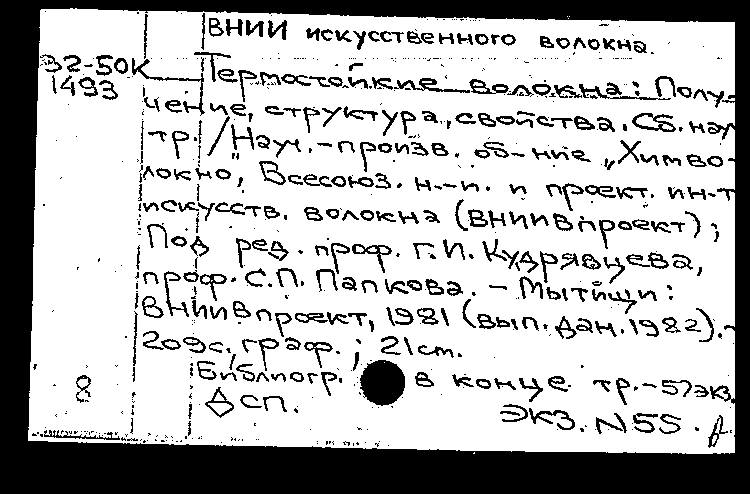 ВНИИ искусственного волокна.
32-50К
1493
Термостойкие волокна: Полу-
чение, структура, свойства. Сб. науч
тр. / Науч.-произв. об-ние "Химво-
локно", Всесоюз. н.-и. и проект. ин-т
искусств. волокна (ВНИИВпроект);
Под ред. проф. Г.И. Кудрявцева,
проф. С.П. Папкова. - Мытищи:
ВНИИВпроект, 1981 (вып. дан. 1982).-
209с., граф.; 21cm.
Библиогр. в конце тр.-57экз.
8
Дсп.
Экз. N55.